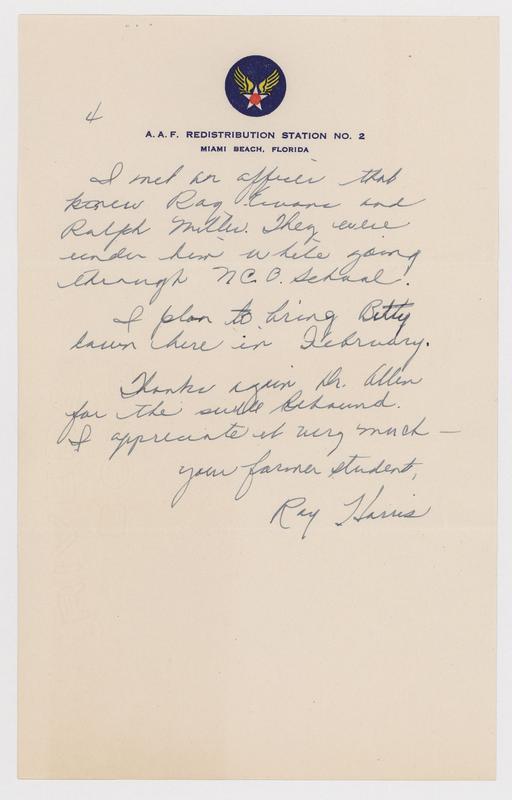 4
A. A. F. REDISTRIBUTION STATION NO. 2
MIAMI BEACH, FLORIDA
I met an officer that
knew Ray Evans and
Ralph Miller. They were
under him while going
through N.C.O. School.
I plan to bring Betty
down here in February.
Thanks again Dr. Allen
for the Rebound.
I appreciate it very much —
your former student,
Ray Harris